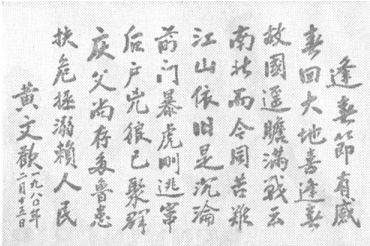 逢春節有感
春回大地喜逢春
故國遥瞻滿戰雲
南北而今同苦難
江山依旧是沉淪
前门暴虎刚逃窜
后户兇狼已聚群
庆父尚存多鲁患
扶危拯溺賴人民
黄文歡
一九八〇年
二月十五日